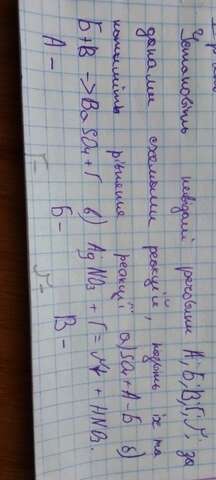 Установіть невідомі речовини А, Б, В, Г, Ґ, за
даними схемами реакцій, назвіть їх та
напишіть рівняння реакції а) SO3 + А - Б б)
Б + В -> BaSO4 + Г в) AgNO3 + Г = Ґ + HNO3.
А - Б - В -
Г - Ґ -